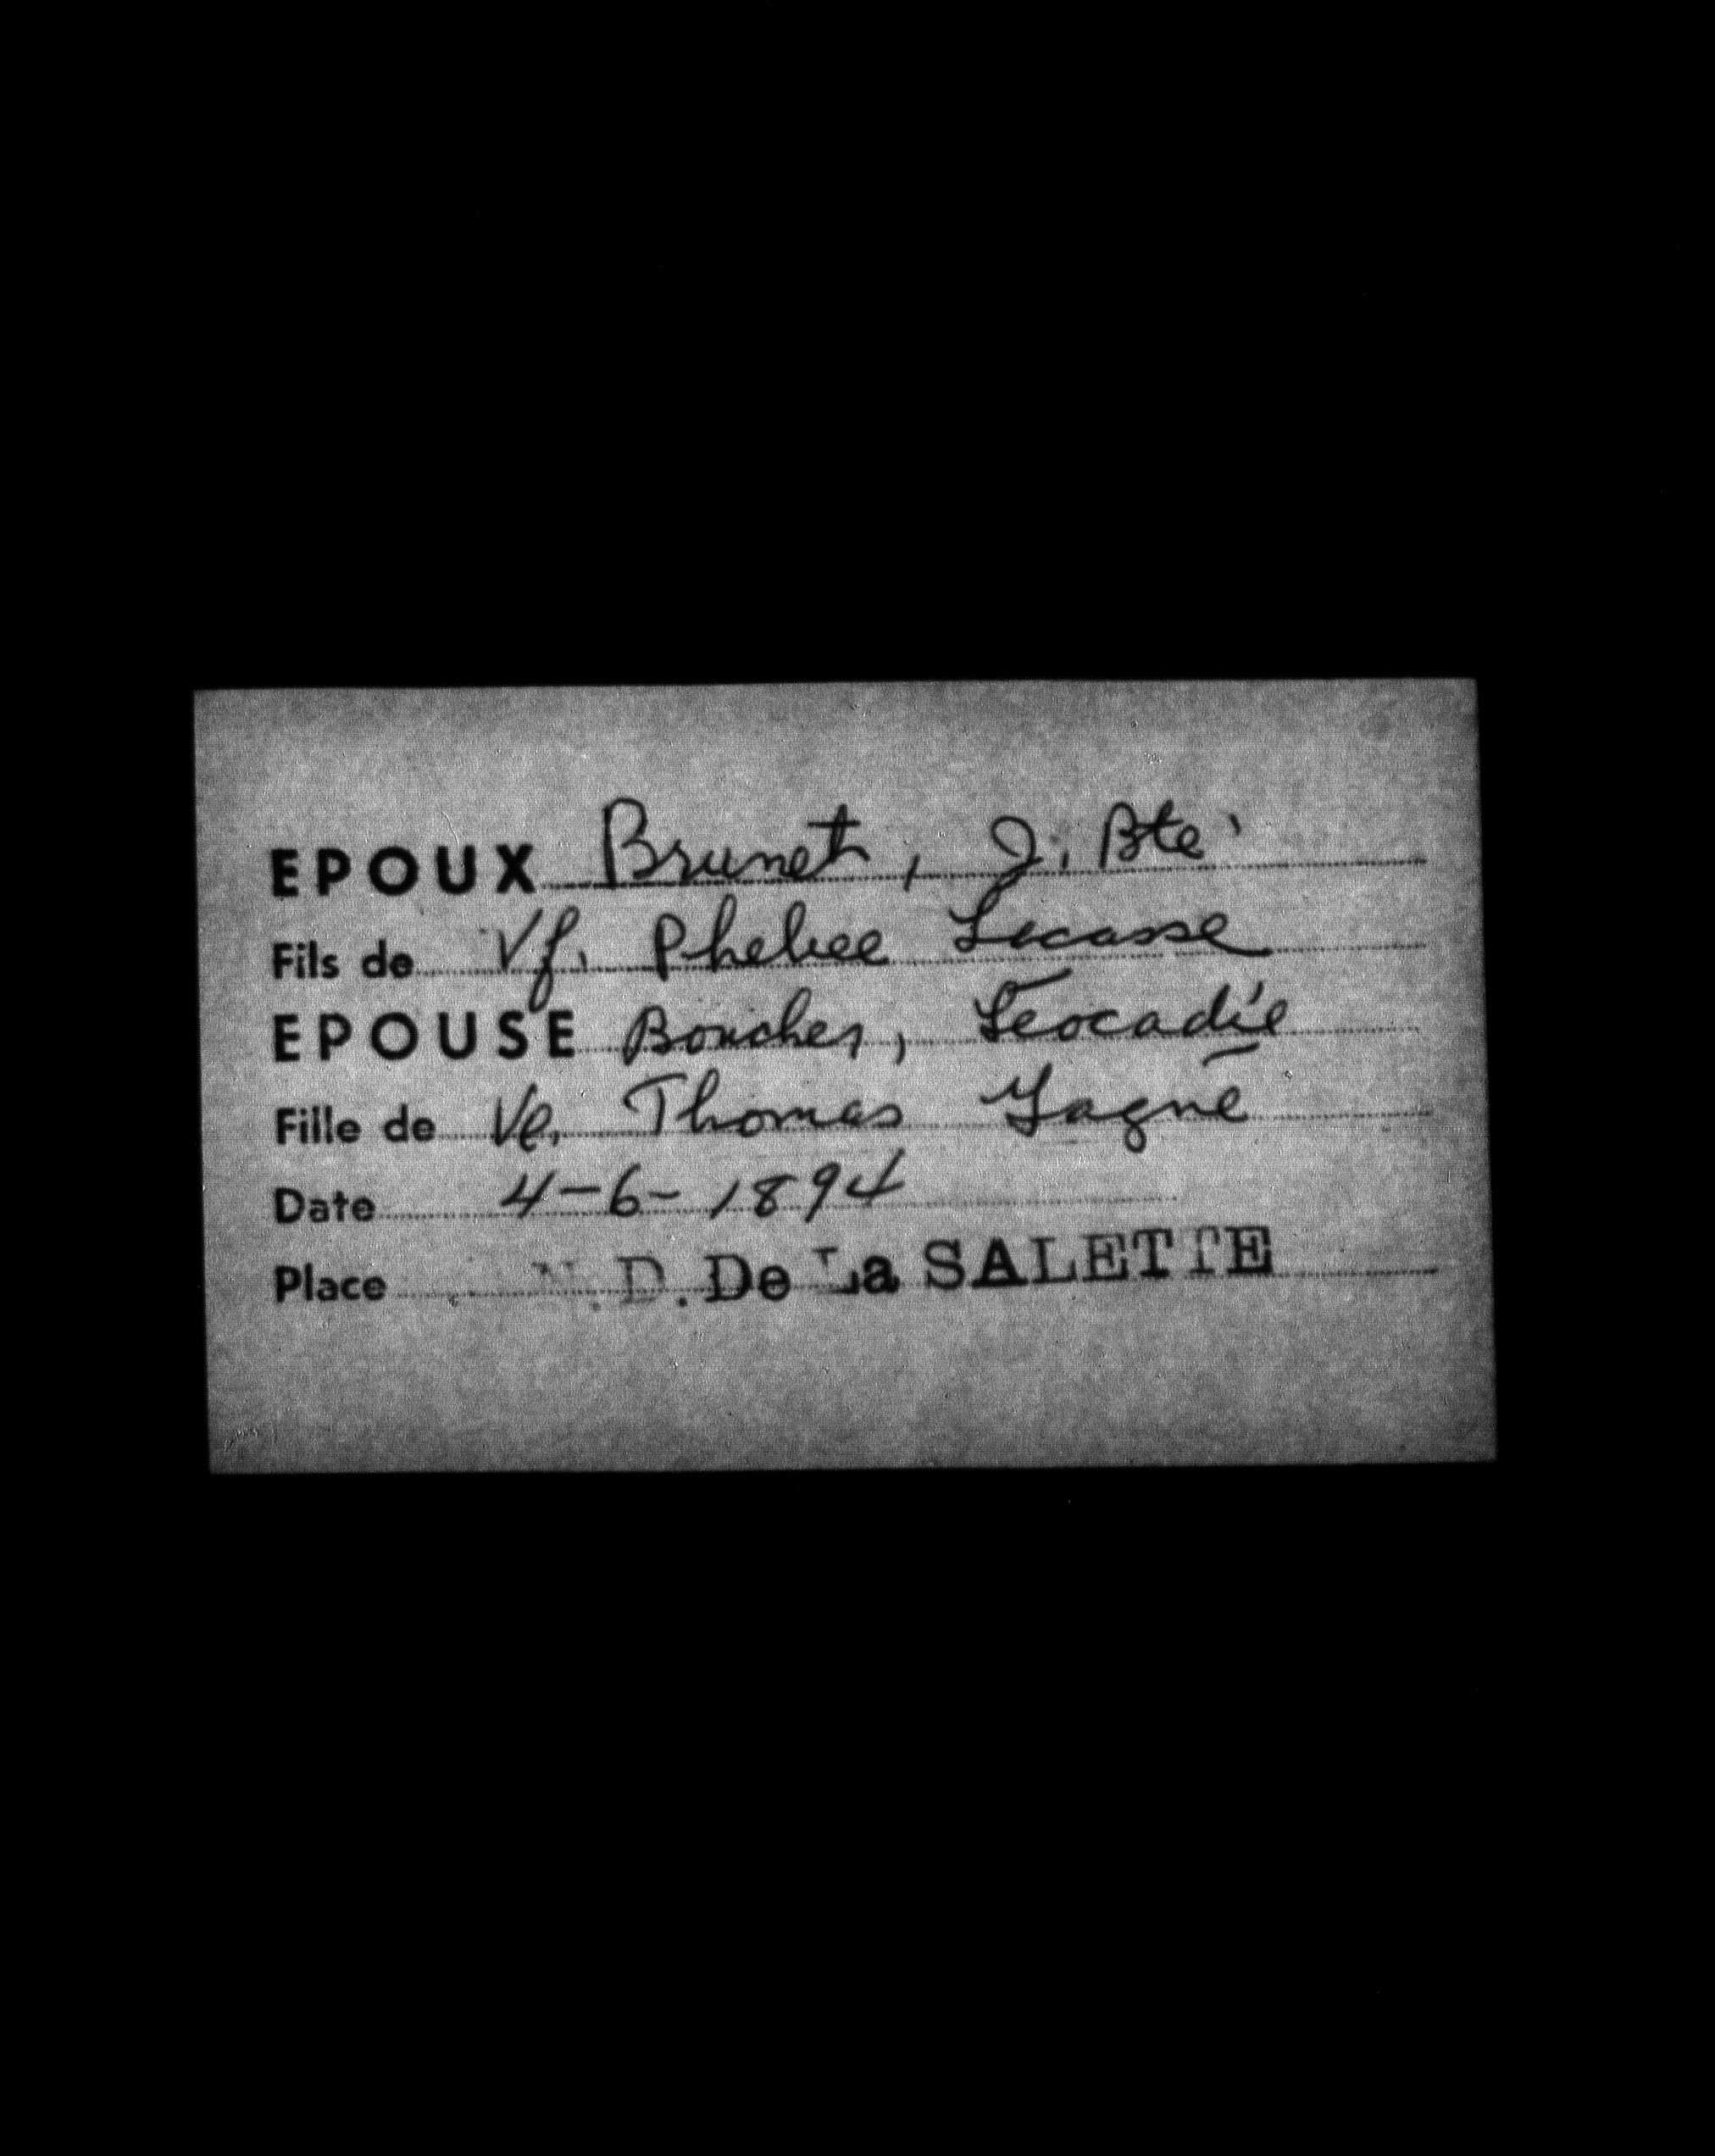 EPOUX Brunet, J. Bte
Fils de Vf. Phebee Lacasse
EPOUSE Boucher, Léocadie
Fille de Ve. Thomas Gagné
Date 4-6-1894
Place N.D. De La SALETTE